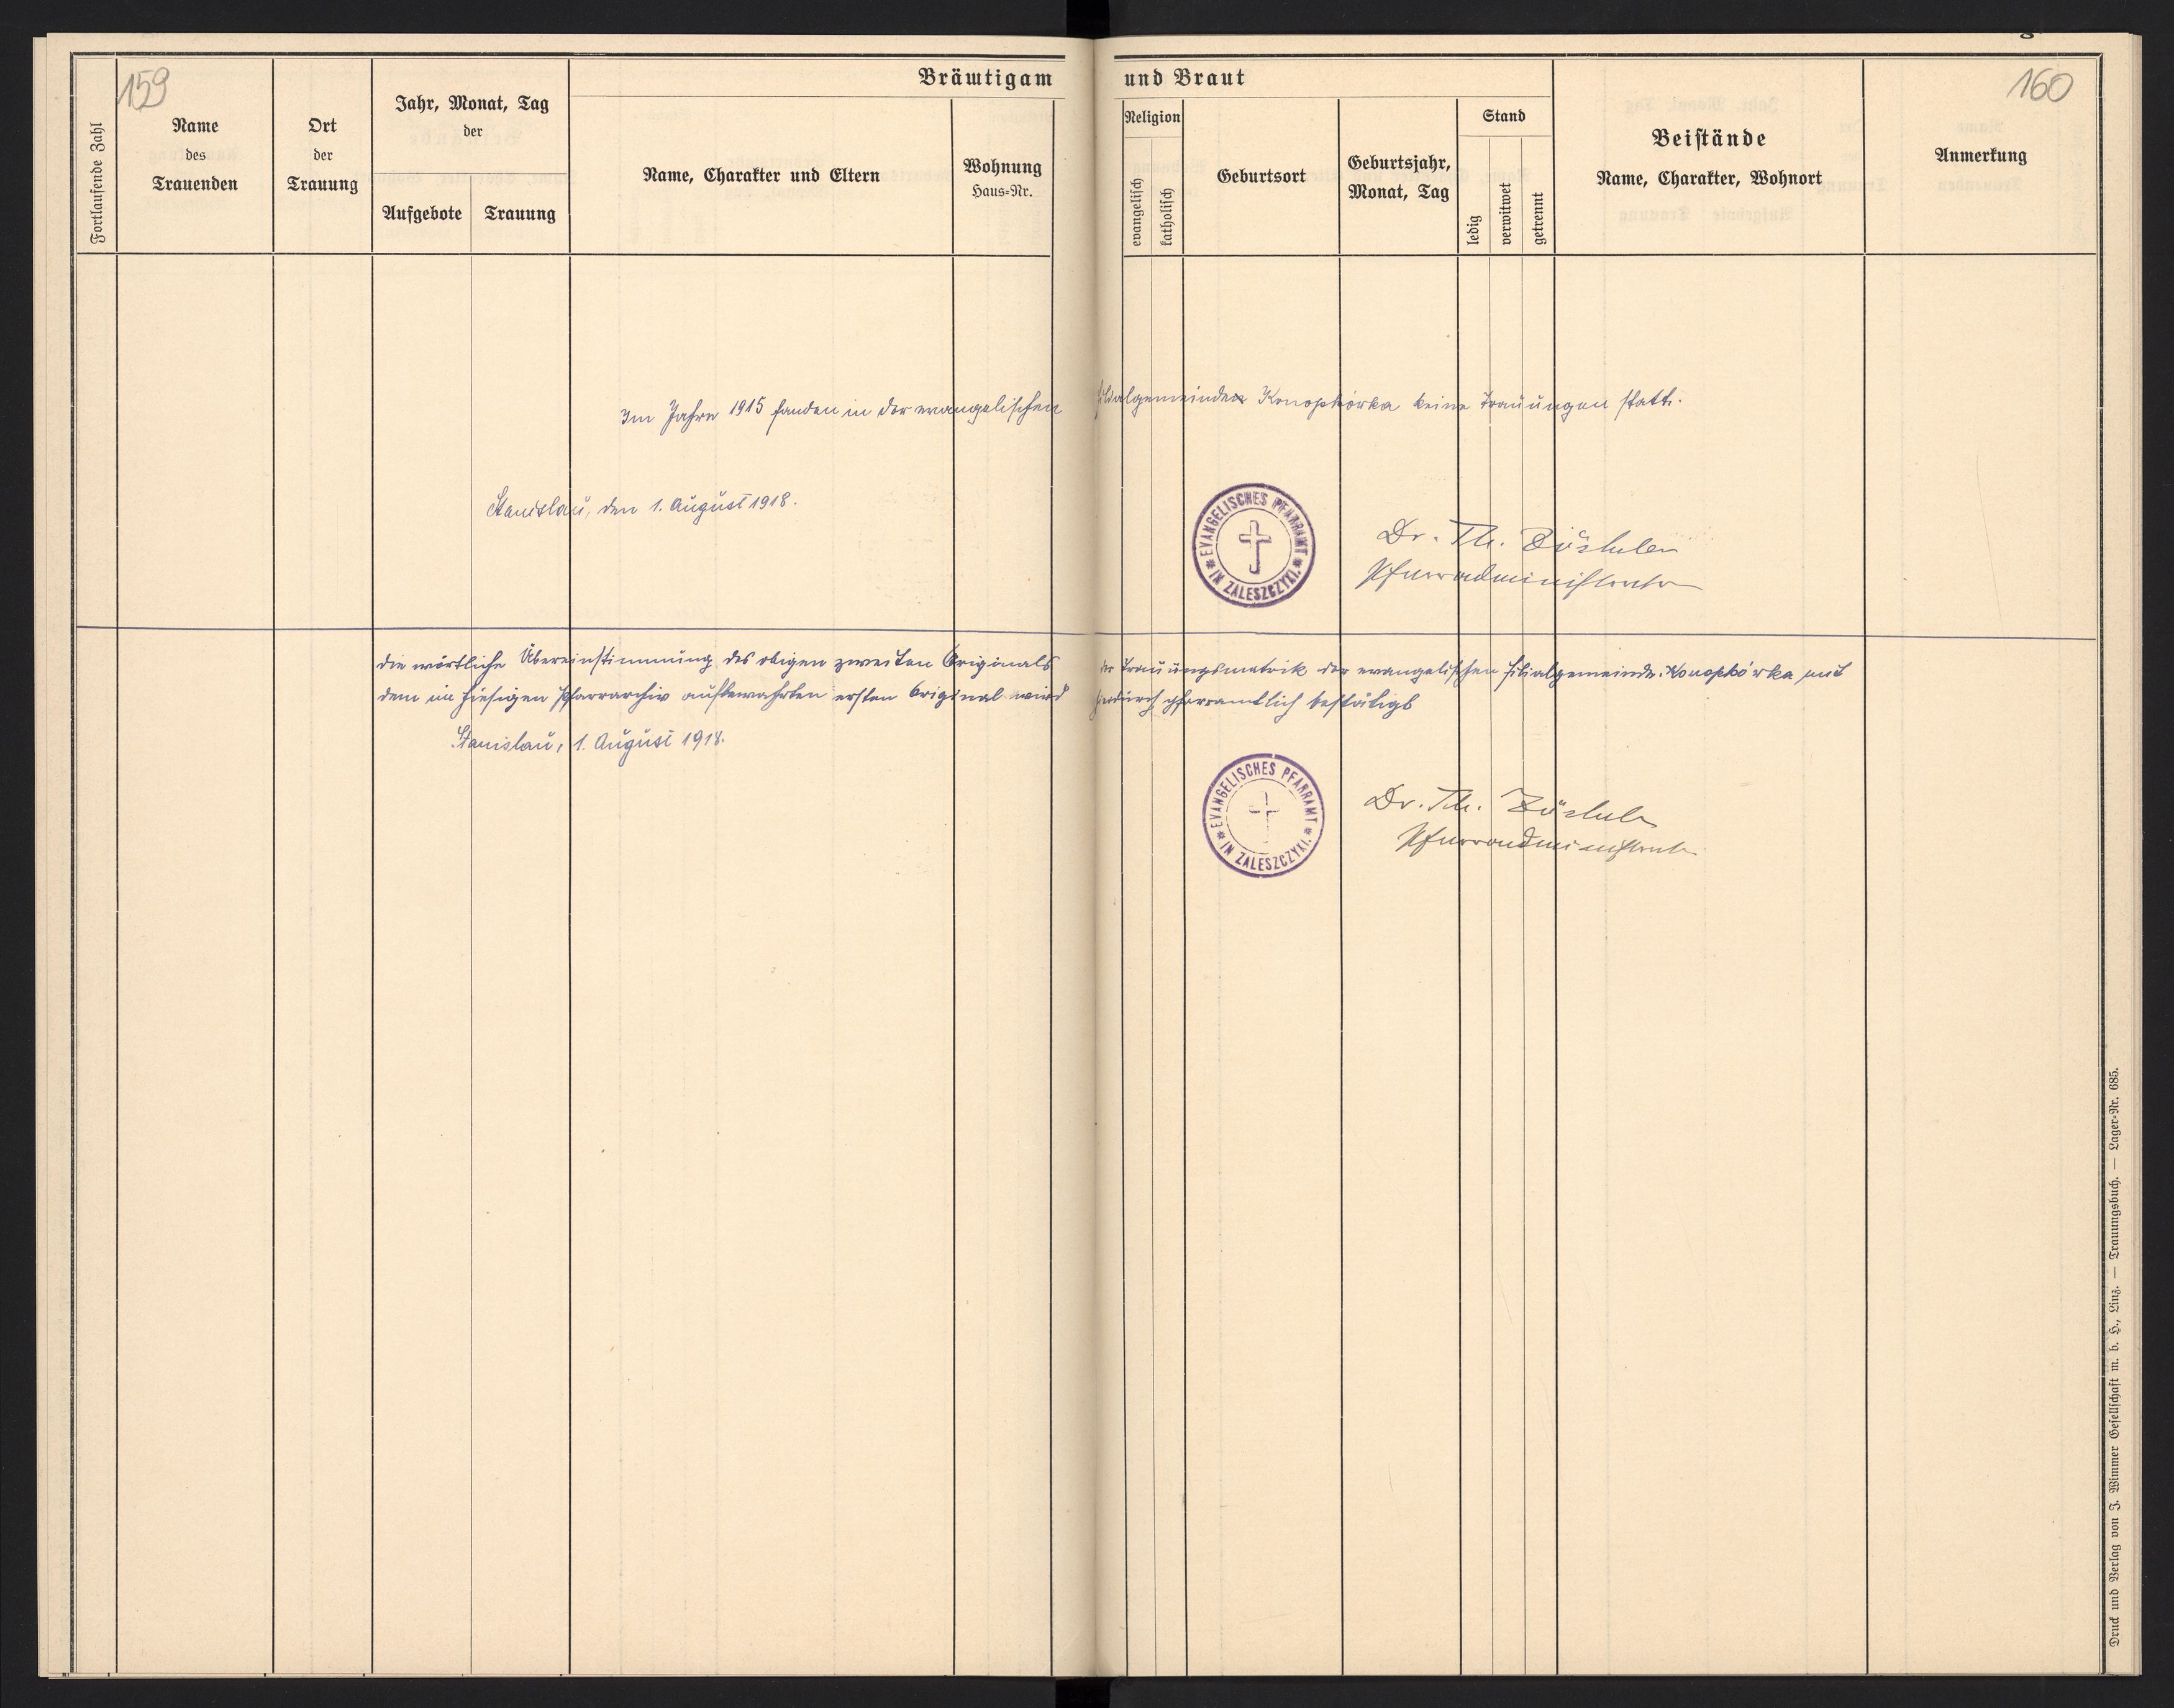 159
160
Fortlaufende Zahl
Name
des
Trauenden
Ort
der
Trauung
Jahr, Monat, Tag
der
Aufgebote
Trauung
Bräutigam und Braut
Name, Charakter und Eltern
Wohnung
Haus-Nr.
Religion
evangelisch
katholisch
Geburtsort
Geburtsjahr,
Monat, Tag
Stand
ledig
verwitwet
getrennt
Beistände
Name, Charakter, Wohnort
Anmerkung
Im Jahre 1915 fanden in der evangelischen Filialgemeinde Konopkówka keine Trauungen statt.
Stanislau, den 1. August 1918.
EVANGELISCHES PFARRAMT
IN ZALESZCZYKI.
Dr. Th.
Pfarradministrator
die wörtliche Übereinstimmung des obigen zweiten Originals der Trauungsmatrik der evangelischen Filialgemeinde Konopkówka mit
dem im hiesigen Pfarrarchiv aufbewahrten ersten Original wird hierdurch pfarramtlich bestätigt
Stanislau, 1. August 1918.
EVANGELISCHES PFARRAMT
IN ZALESZCZYKI.
Dr. Th.
Pfarradministrator
Druck und Verlag von J. Wimmer Gesellschaft m. b. H., Linz. — Trauungsbuch. — Lager-Nr. 685.